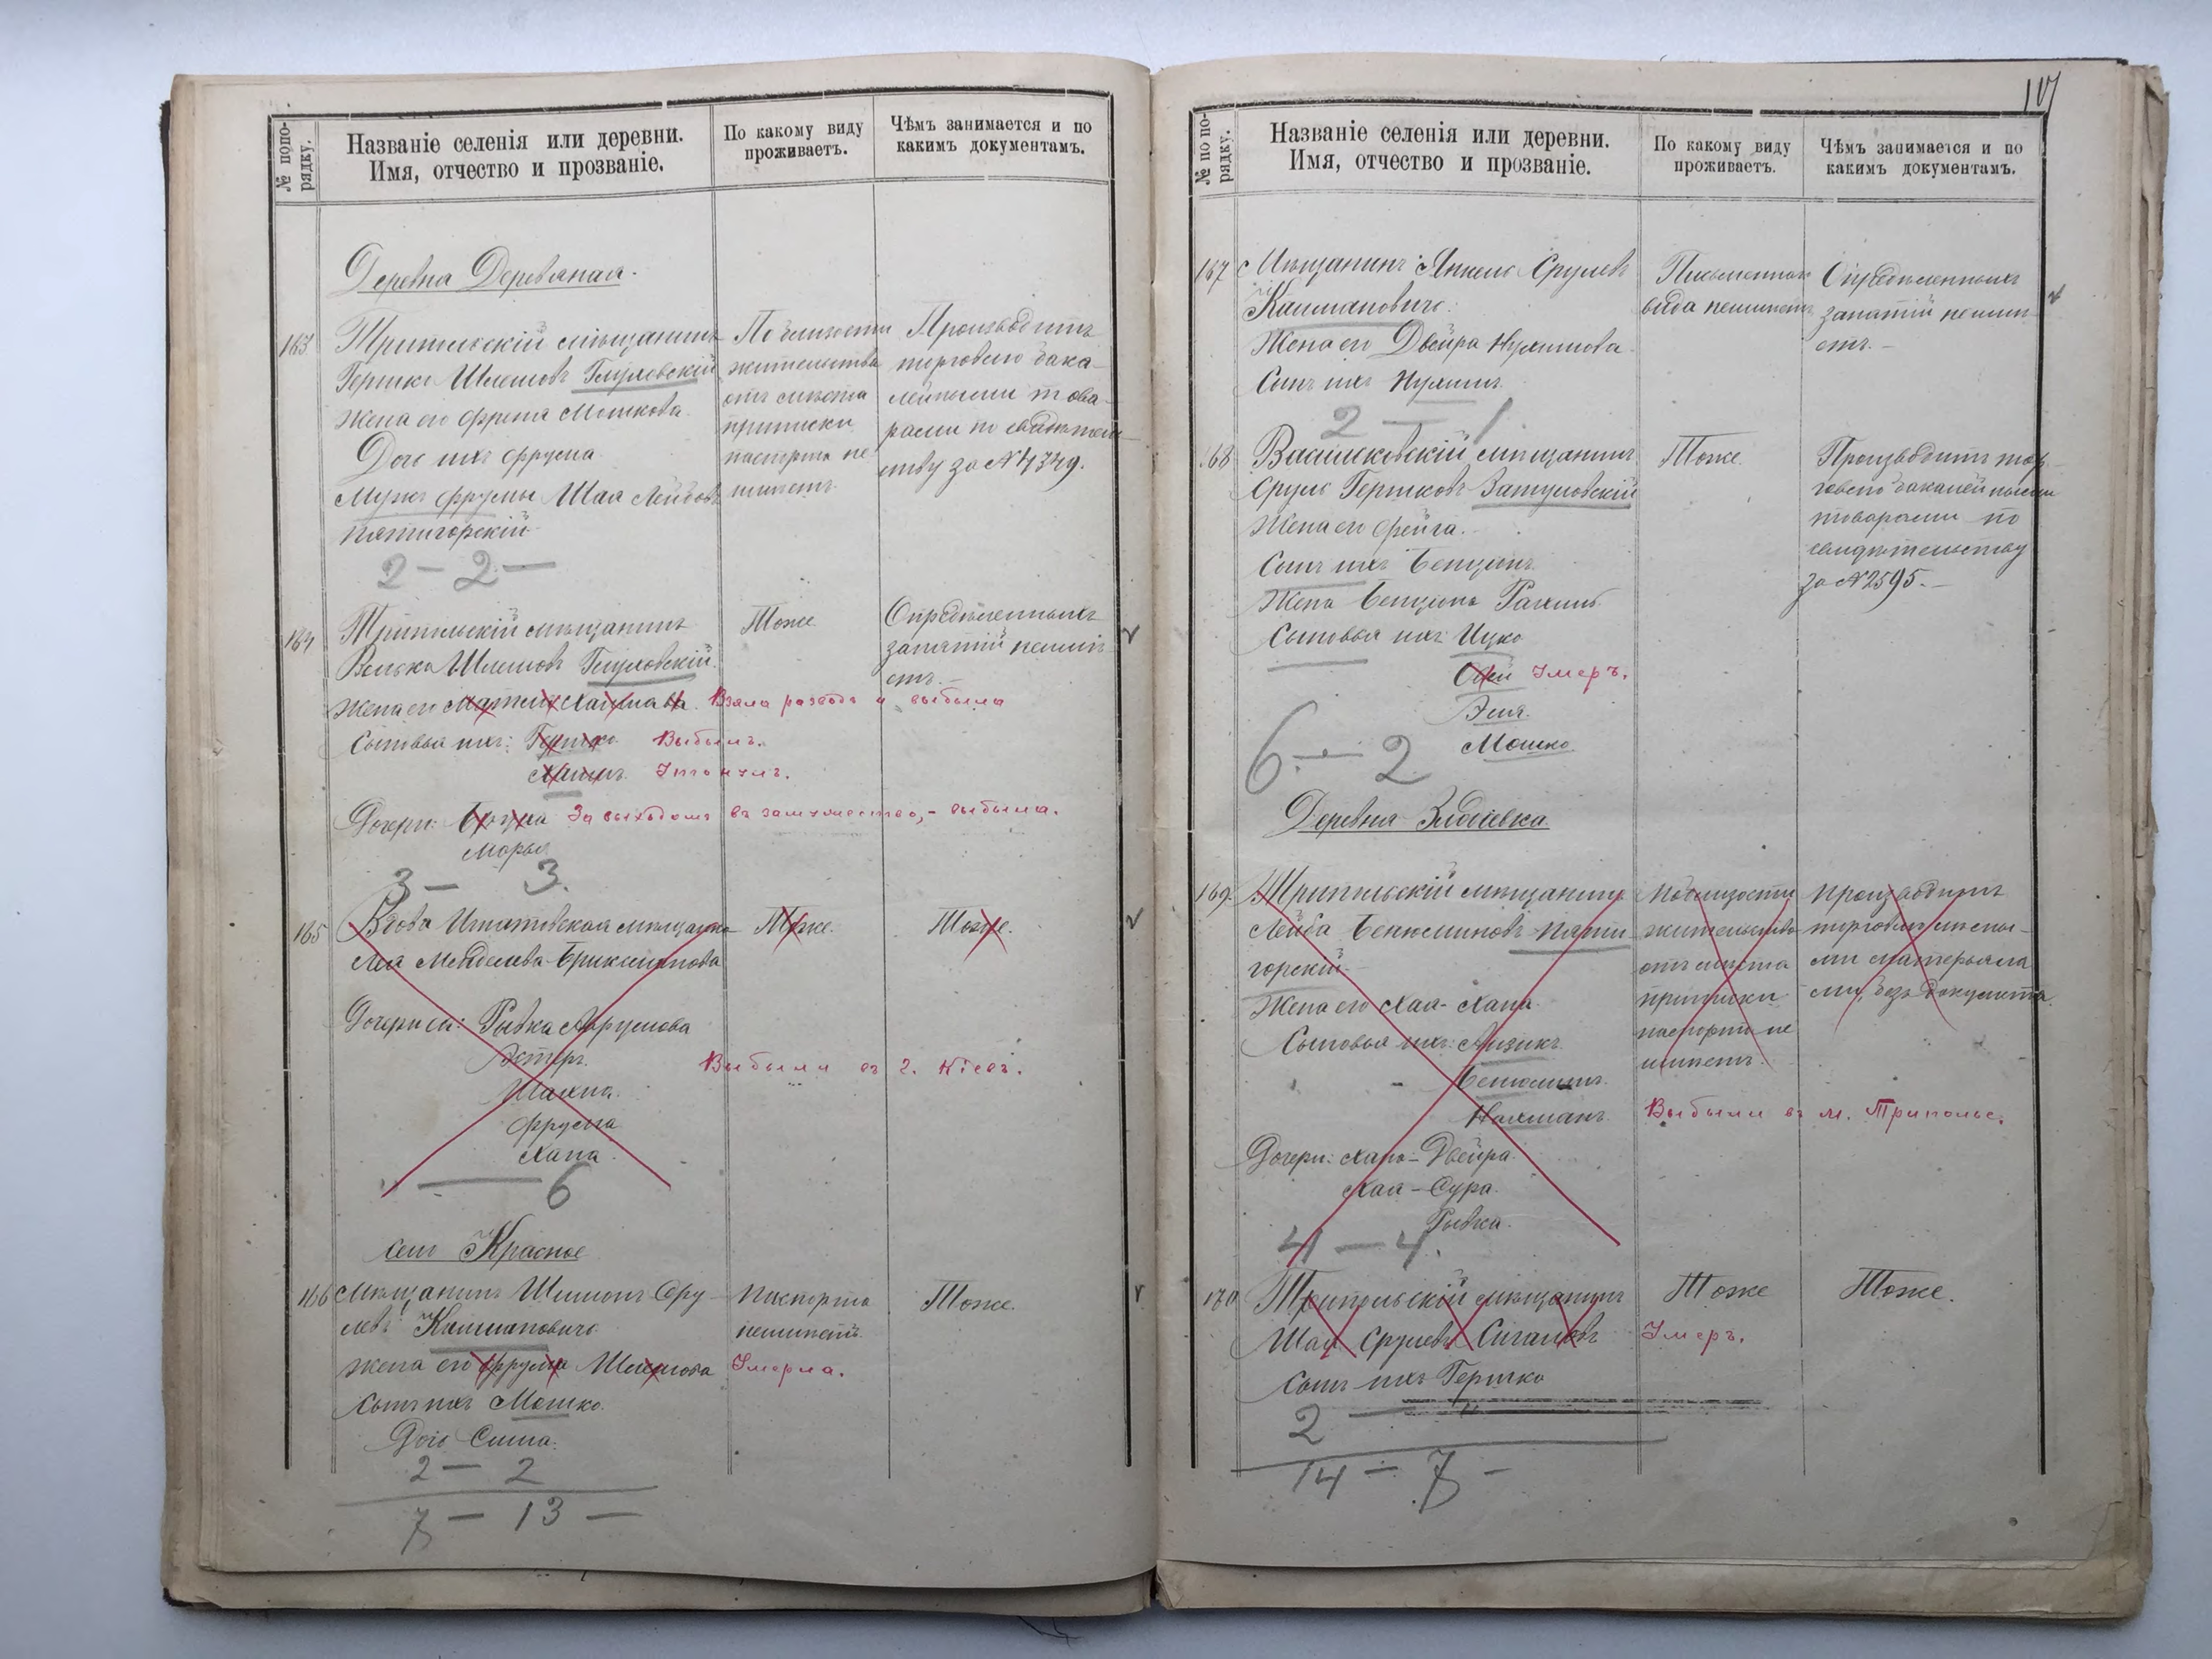 № попо-
рядку.
Названіе селенія или деревни.
Имя, отчество и прозваніе.
По какому виду
проживаетъ.
Чѣмъ занимается и по
какимъ документамъ.
Деревня Деревяная.
163
Трипольскій мѣщанинъ
Гершко Шлемовъ
жена его Фрейга Мошкова
Дочь ихъ Фрума
Мужъ Фрумы Шая Лейбовъ
Пятигорскій
2 — 2 —
По близости
жительства
отъ мѣста
приписки
паспорта не
имѣетъ
Производитъ
торговлю бака-
лейными това-
рами по свидѣтель-
ству за № 4349.
164
Трипольскій мѣщанинъ
Волька Шлемовъ
Жена его Хаимова. Взяла разводъ и выбыла
Сыновья ихъ: Гершко Выбылъ.
Хаимъ Утонулъ.
Дочери: За выходомъ въ замужество, - выбыла.
Марья
3 — 3.
Тоже
Опредѣленныхъ
занятій неимѣ-
етъ. —
165
Вдова Игнатовская мѣщанка
Лея Менделева
Дочери ея: Рывка Аврумова
Эстеръ.
Фрума
Хана.
— 6
Тоже.
Тоже.
Выбыли въ г. Кіевъ.
село Красное
166
Мѣщанинъ Шимонъ Сру-
левъ Калмановичъ
жена его Фрума Шлемова Умерла.
Сынъ ихъ Мошко.
Дочь Сима.
2 — 2
7 — 13 —
Паспорта
неимѣетъ
Тоже.
107
№ по по-
рядку.
Названіе селенія или деревни.
Имя, отчество и прозваніе.
По какому виду
проживаетъ.
Чѣмъ занимается и по
какимъ документамъ.
167
Мѣщанинъ Янкель Срулевъ
Калмановичъ.
Жена его Двейра Нухимова
Сынъ ихъ Нухимъ
2 — 1
Письменнаго
вида неимѣетъ
Опредѣленныхъ
занятій неимѣ-
етъ. —
168
Васильковскій мѣщанинъ
Сруль Гершковъ Затуловскій
Жена его Фейга.
Сынъ ихъ Бенціонъ
Жена Бенціона Рахиль
Сыновья ихъ Ицко
Умеръ.
Эля.
Мошко
6 — 2
Тоже.
Производитъ тор-
говлю бакалейными
товарами по
свидѣтельству
за № 2595. —
Деревня
169.
Трипольскій мѣщанинъ
Лейба Беньяминовъ Пяти-
горскій
Жена его Хая-Хана.
Сыновья ихъ: Айзикъ
Беньяминъ.
Нахманъ.
Дочери: Хана-Двейра
Хая-Сура.
Рывка.
4 — 4.
Поблизости
жительства
отъ мѣста
приписки
паспорта не
имѣетъ.
Производитъ
торговлю лѣсны-
ми матерьяла-
ми, безъ документа.
Выбыли въ м. Триполье.
170
Трипольскій мѣщанинъ
Шая Срулевъ Сигаловъ
Сынъ ихъ Гершко
2 —
14 — 7 —
Тоже
Умеръ.
Тоже.